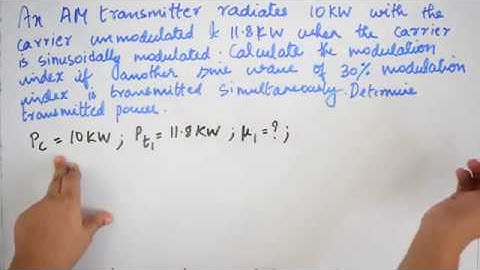 An AM transmitter radiates 10KW with the
carrier unmodulated & 11.8KW when the carrier
is sinusoidally modulated. Calculate the modulation
index if another sine wave of 30% modulation
index is transmitted simultaneously. Determine
transmitted power.
Pc = 10KW ; Pt1 = 11.8KW ; μ1 = ? ;